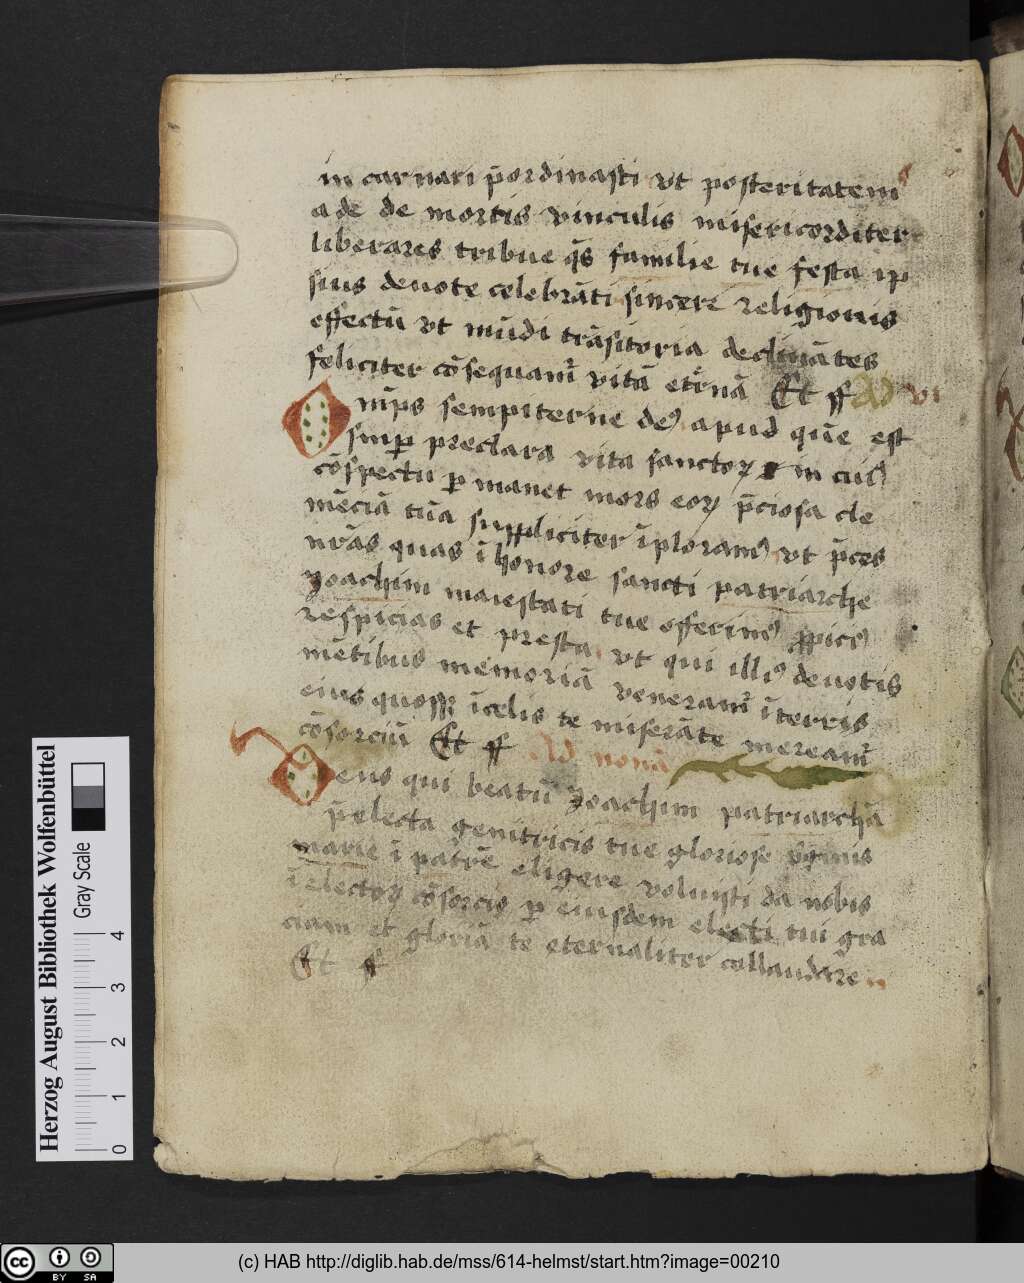 in carnari p̄ordinasti vt posteritatem
ade de mortis vinculis misericorditer
liberares tribue q̄s familie tue festa ip
sius deuote celebrāti sincere religionis
effectū vt mūdi trāsitoria declinātes
feliciter cōsequamr vitā etr̄nā Et ff Ad vi
Om̄ps sempiterne deꝰ apud quē est
smꝑ preclara vita sanctoꝝ et in cuiꝰ
cōspectu ꝑ manet mors eoꝝ p̄ciosa cle
mēciā tuā suppliciter īploramꝰ vt p̄ces
nr̄as quas ī honore sancti patriarche
Joachim maiestati tue offerimꝰ ꝓpiciꝰ
respicias et presta vt qui illiꝰ deuotis
mētibus memoriā veneramr ī terris
eius quoqꝫ ī celis te miserāte mereamr
cōsorciū Et ff
Deus qui beatū Joachim patriarchā
p̄electa genitricis tue gloriose v̄ginis
marie ī patrē eligere voluisti da nobis
ī electoꝝ cōsorcio ꝑ eiusdem electi tui gra
ciam et gloriā te eternaliter collaudare
Et ff
Herzog August Bibliothek Wolfenbüttel
Gray Scale
0 1 2 3 4
cc BY SA
(c) HAB http://diglib.hab.de/mss/614-helmst/start.htm?image=00210